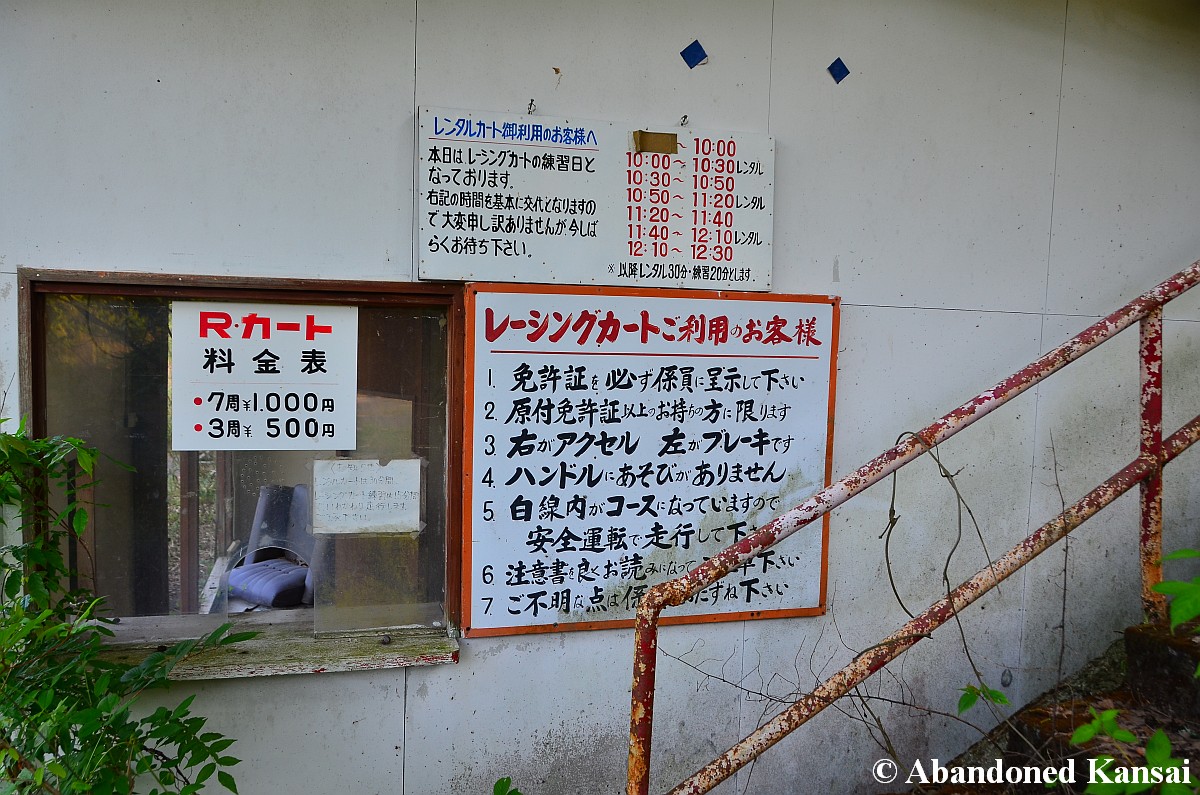 レンタルカート御利用のお客様へ
本日は レーシングカートの練習日と
なっております。
右記の時間を基本に交代となりますの
で 大変申し訳ありませんが、今しば
らくお待ち下さい。
～ 10:00
10:00～ 10:30レンタル
10:30～ 10:50
10:50～ 11:20レンタル
11:20～ 11:40
11:40～ 12:10レンタル
12:10～ 12:30
※以降レンタル30分・練習20分とします。
R・カート
料金表
・7周¥1.000円
・3周¥ 500円
レーシングカートご利用のお客様
1. 免許証を必ず係員に呈示して下さい
2. 原付免許証以上のお持ちの方に限ります
3 右がアクセル 左がブレーキです
4 ハンドルにあそびがありません
5 白線内がコースになっていますので
安全運転で走行して下
6 注意書を良くお読みになって 下さい
7 ご不明な点は係 たずね下さい
© Abandoned Kansai